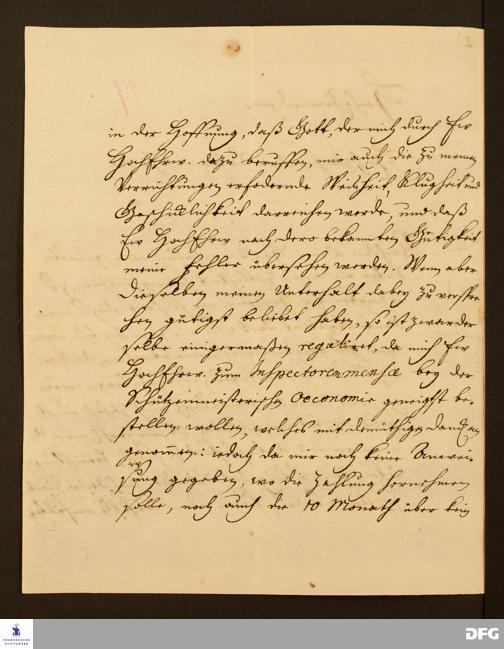 in der Hoffnung, daß Gott, der mich durch Ew
HochEhrw. dazu beruffen, mir auch die zu meinen
Verrichtungen erfodernde Weisheit, Klugheit und
Geschicklichkeit darreichen werde, und daß
Ew HochEhrw nach dero bekanten Gütigkeit
meine Fehler übersehen werden. Wenn aber
Dieselben meinen Unterhalt dabey zu verspre
chen gütigst beliebet haben, so ist zwar der
selbe einigermaßen reguliret, da mich Ew
HochEhrw. zum Inspectore mensæ bey der
Schützemeisterischen Oeconomie geneigst be-
stellen wollen, welches mit demüthigen Danck an
genommen: jedoch da mir noch keine Anwei-
sung gegeben, wo die Zahlung hernehmen
solle, noch auch die 10 Monath über kein
FRANCKESCHE
STIFTUNGEN
DFG